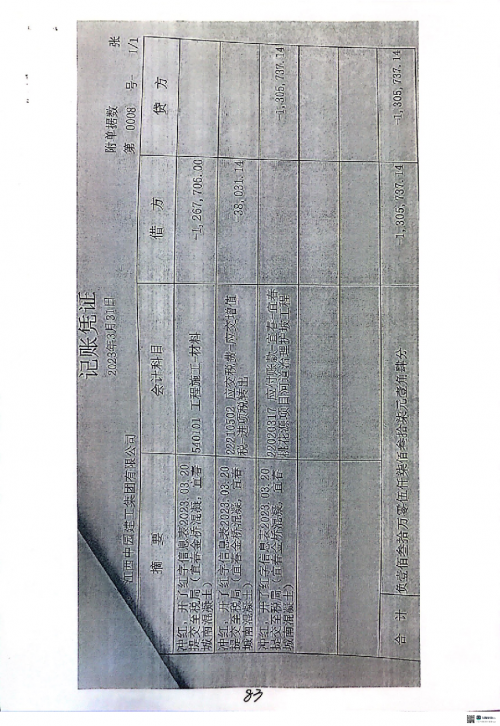 记账凭证
2023年3月31日
附单据数 张
江西中园建工集团有限公司
第 0008 号- 1/1
摘 要 会计科目 借 方 贷 方
冲红，开了红字信息表2023.03.20
提交至税局（宜春金桥混凝，宜春
城南混凝土）
540101 工程施工-材料
-1,267,706.00
冲红，开了红字信息表2023.03.20
提交至税局（宜春金桥混凝，宜春
城南混凝土）
22210502 应交税费-应交增值
税-进项税转出
-38,031.14
冲红，开了红字信息表2023.03.20
提交至税局（宜春金桥混凝，宜春
城南混凝土）
22020317 应付账款-宜春-宜春
桃花源项目河道治理护坡工程
-1,305,737.14
合 计 负壹佰叁拾万零伍仟柒佰叁拾柒元壹角肆分 -1,305,737.14 -1,305,737.14
83